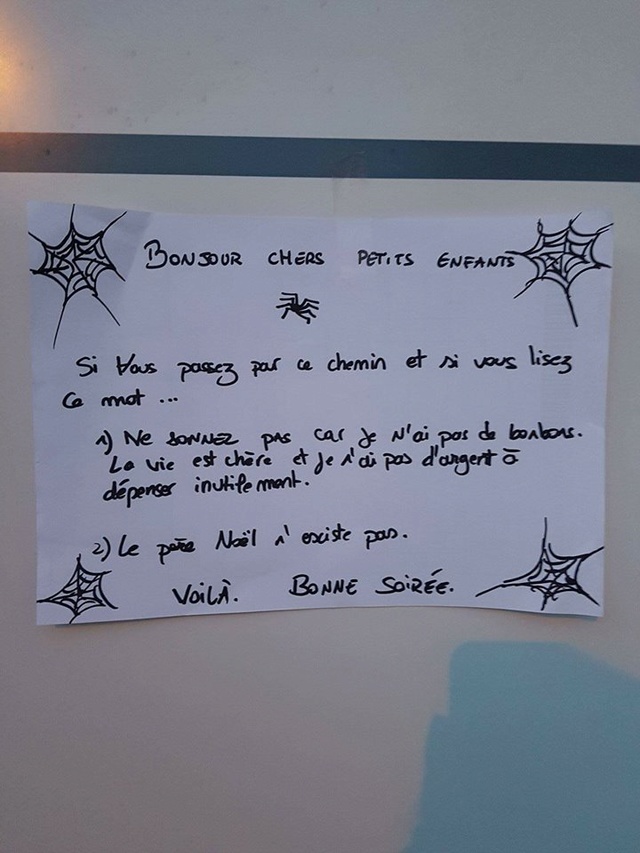 BONJOUR CHERS PETITS ENFANTS
Si Vous passez par ce chemin et si vous lisez
Ce mot ...
1) NE SONNEZ PAS car je N'ai pas de bonbons.
La vie est chère et je n'ai pas d'argent à
dépenser inutilement.
2) Le père Noël n'existe pas.
VOILÀ. BONNE SOIRÉE.